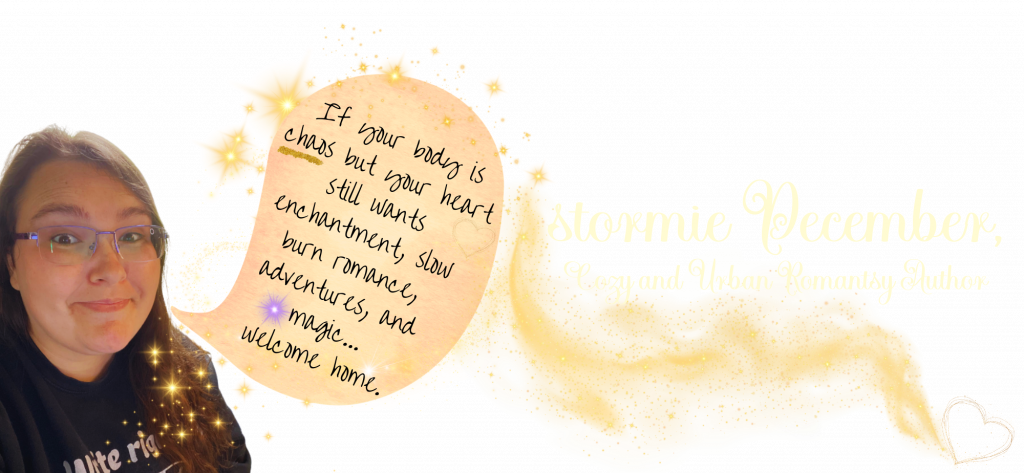 If your body is
chaos but your heart
still wants
enchantment, slow
burn romance,
adventures, and
magic...
welcome home.
stormie December,
Cozy and Urban Romantsy Author